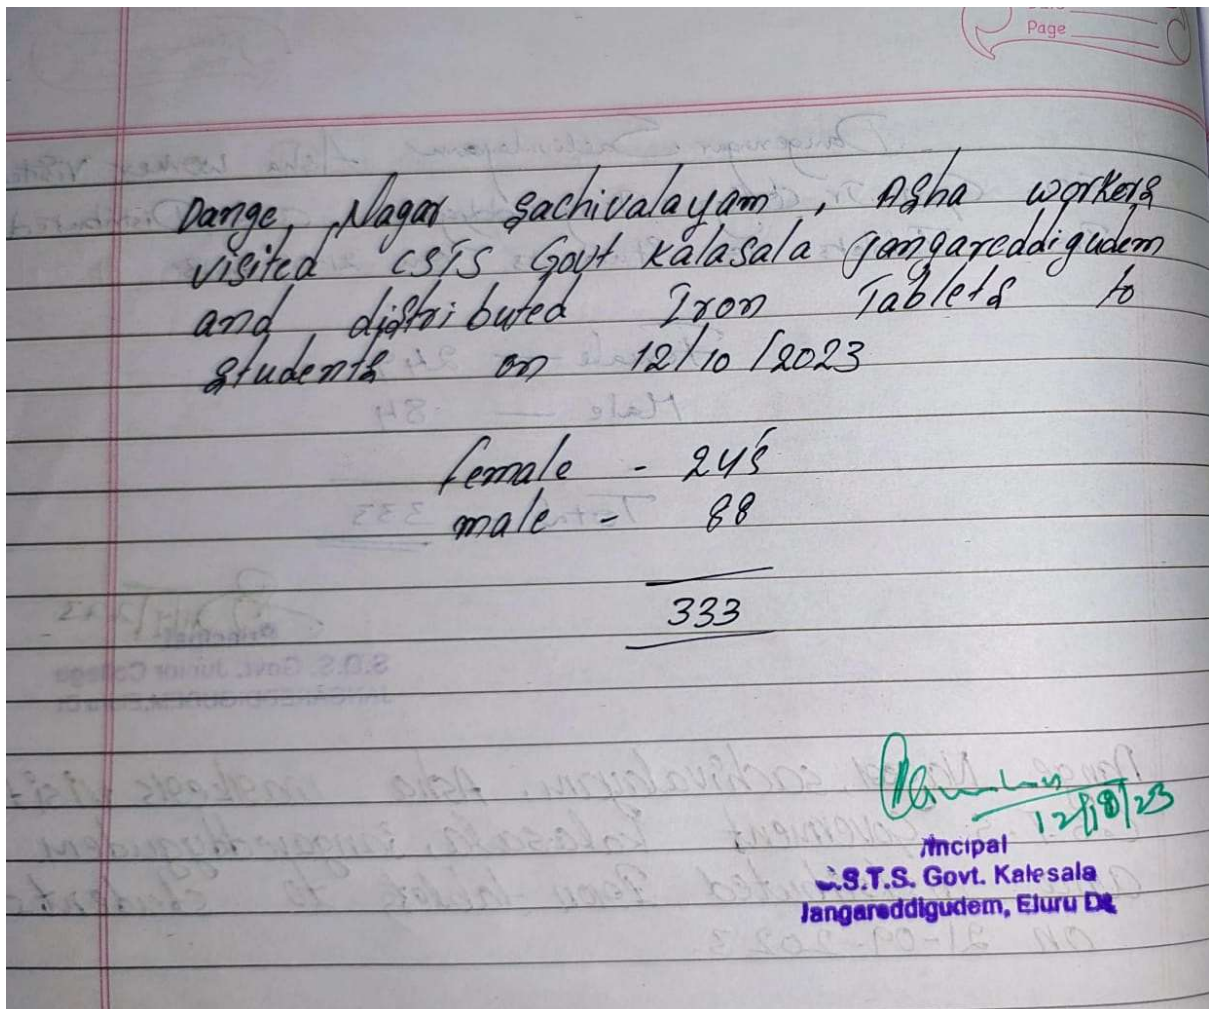 Page
Dange, Nagar Sachivalayam, Asha workers
visited CSTS Govt Kalasala Jangareddigudem
and distributed Iron Tablets to
students on 12/10/2023
female - 245
male - 88
333
12/10/23
rincipal
.S.T.S. Govt. Kalesala
Jangareddigudem, Eluru Dt